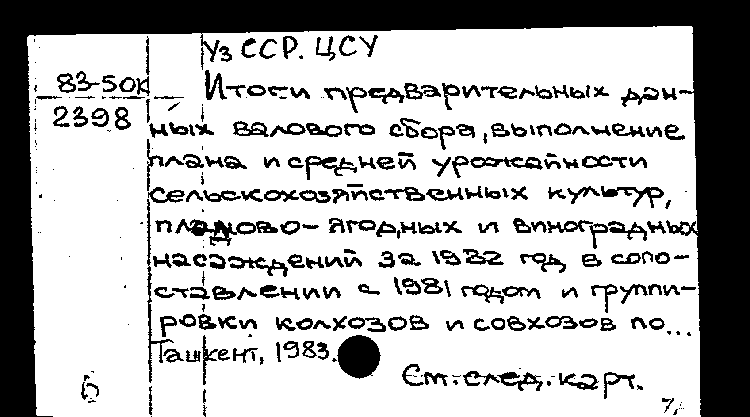 Уз ССР. ЦСУ
83-50к
2398
Итоги предварительных дан-
ных валового сбора, выполнение
плана и средней урожайности
сельскохозяйственных культур,
плодово-ягодных и виноградных
насаждений за 1982 год в сопо-
ставлении с 1981 годом и группи-
ровки колхозов и совхозов по...
Ташкент, 1983.
См. след. карт.
б